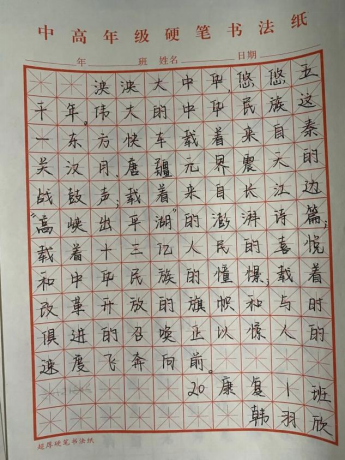 中高年级硬笔书法纸
年 班 姓名 日期
泱泱大中华,悠悠五
千年。伟大的中华民族这
一东方快车载着来自秦
关汉月,唐疆元界震天的
战鼓声;载着来自长江边
"高峡出平湖"的澎湃诗篇;
载着十三亿人民的喜悦
和中华民族的憧憬;载着
改革开放的旗帜和与时
俱进的召唤正以惊人的
速度飞奔向前。
20康复1班
韩羽欣
超厚硬笔书法纸